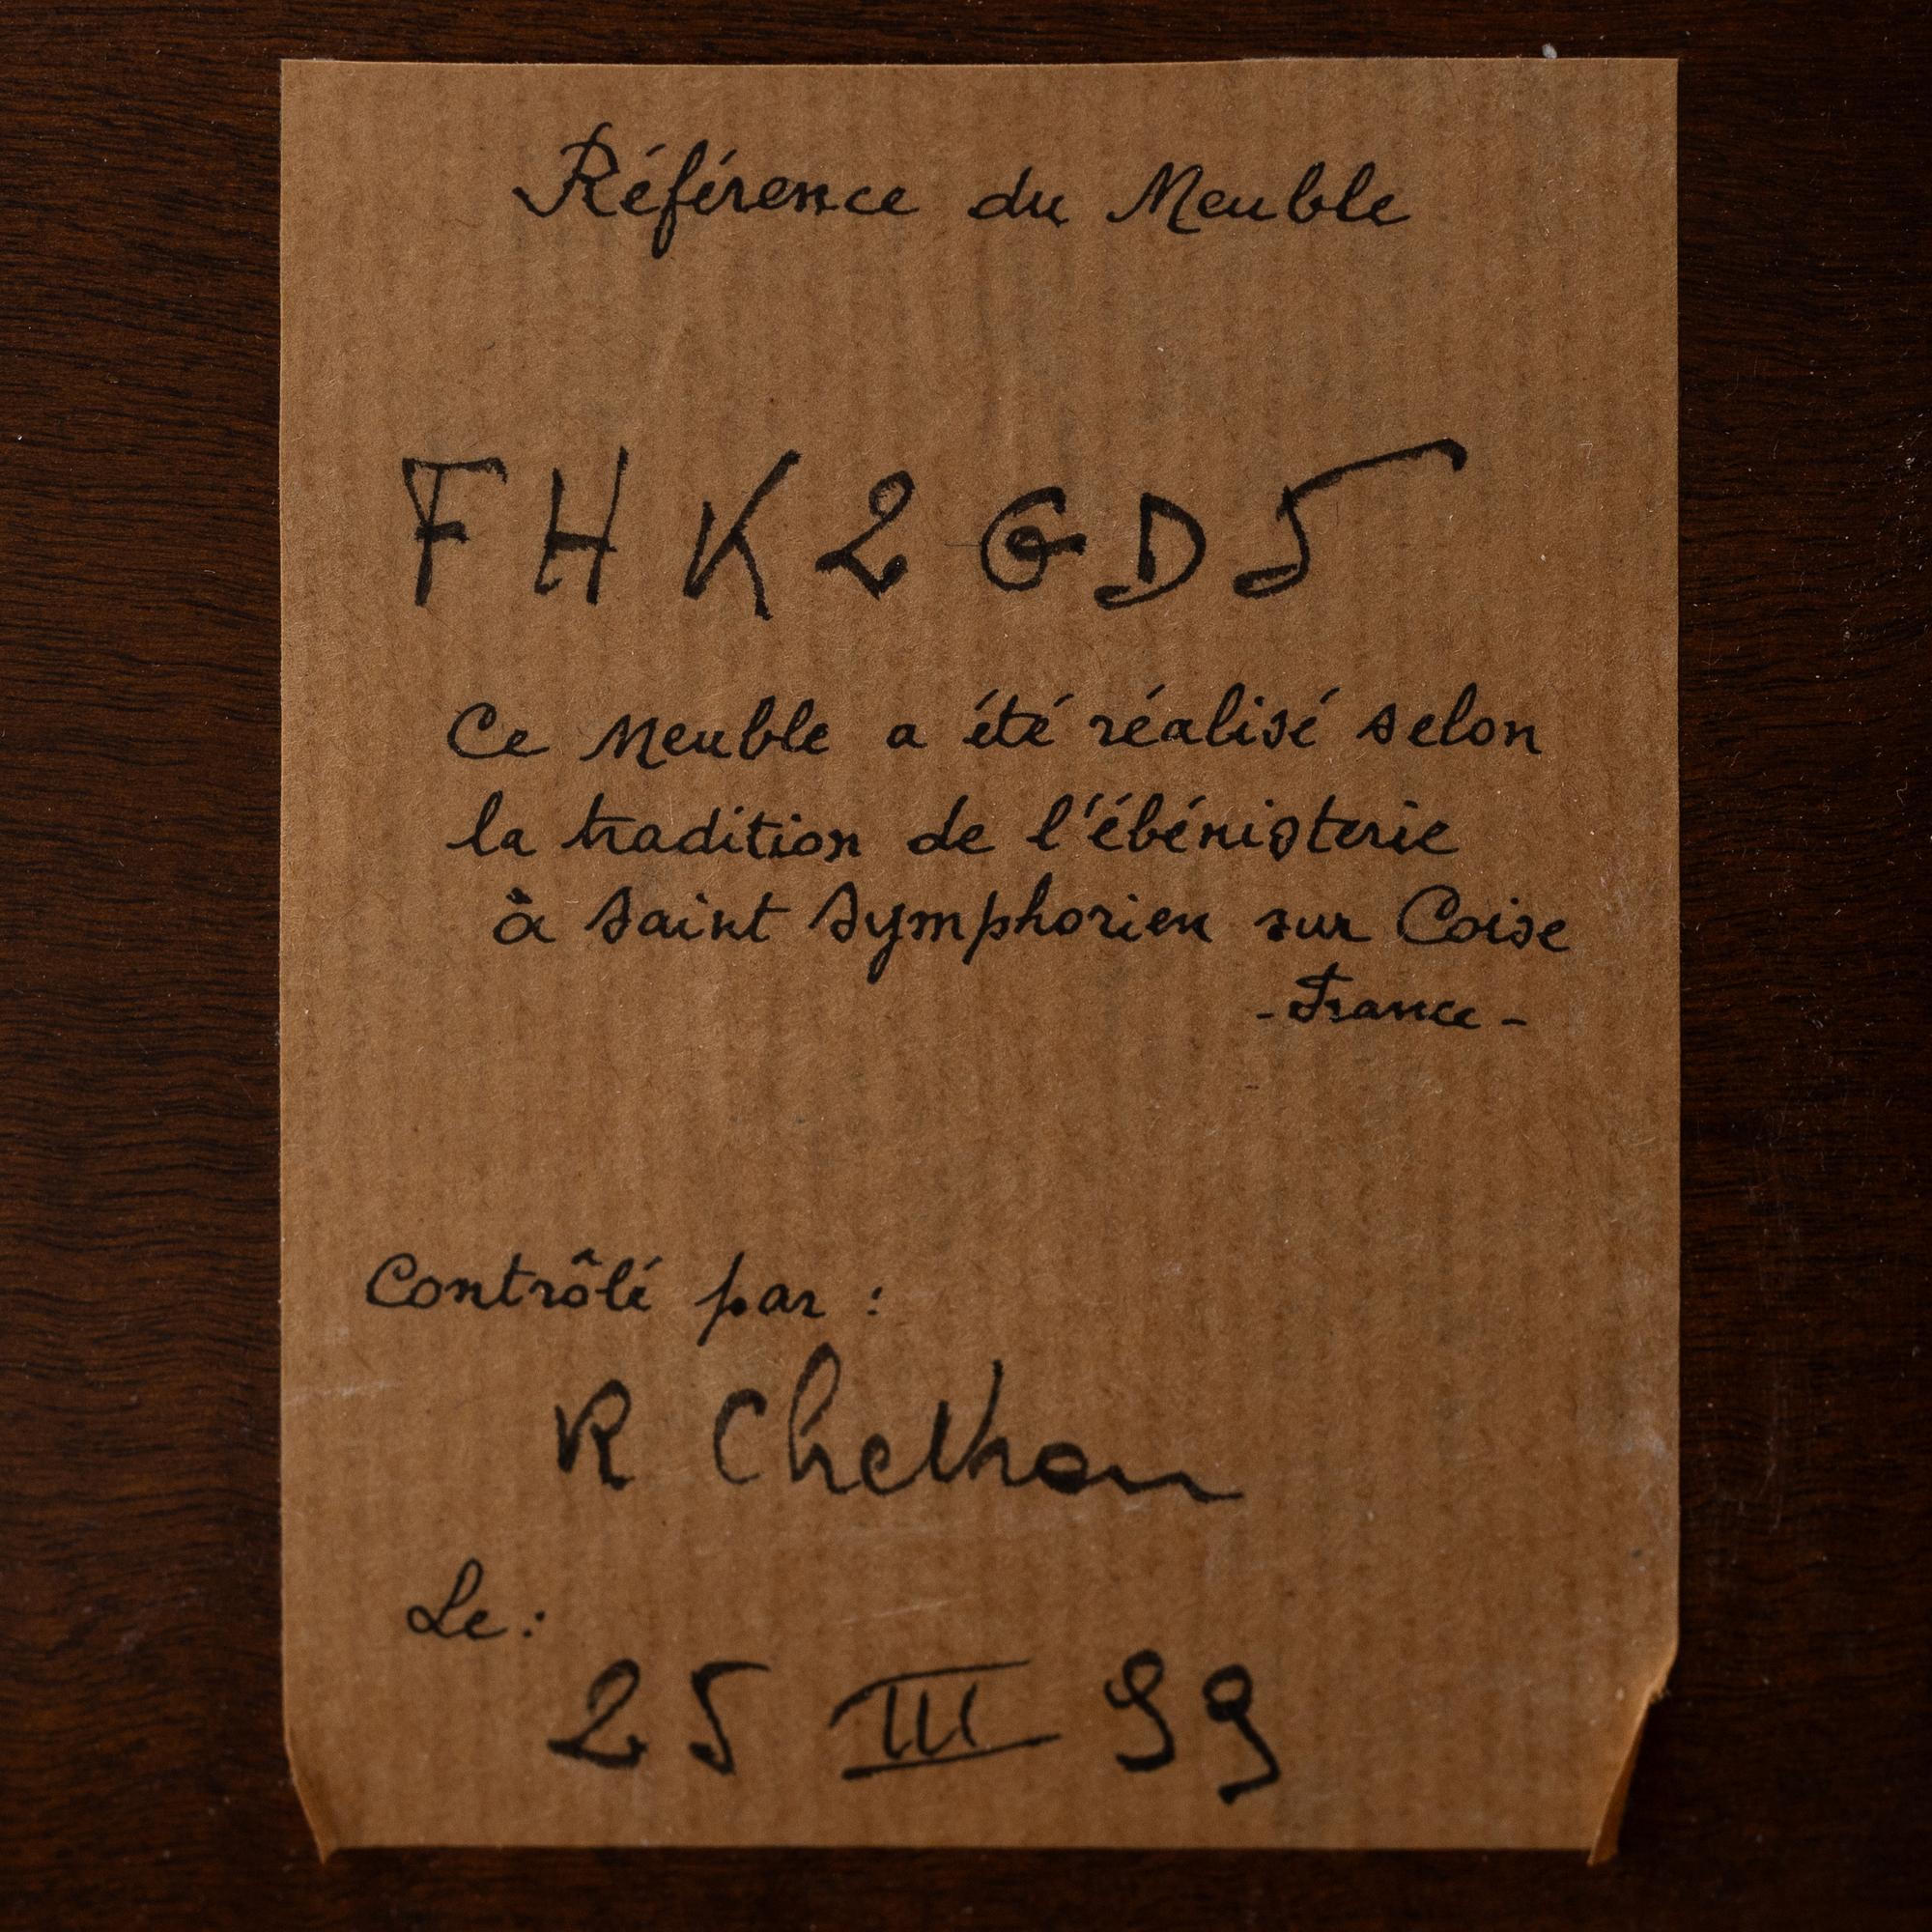 Référence du Meuble
FHK2GD5
Ce Meuble a été réalisé selon
la tradition de l'ébénisterie
à Saint Symphorien sur Coise
- France -
Contrôlé par :
R
Le :
25 III 99